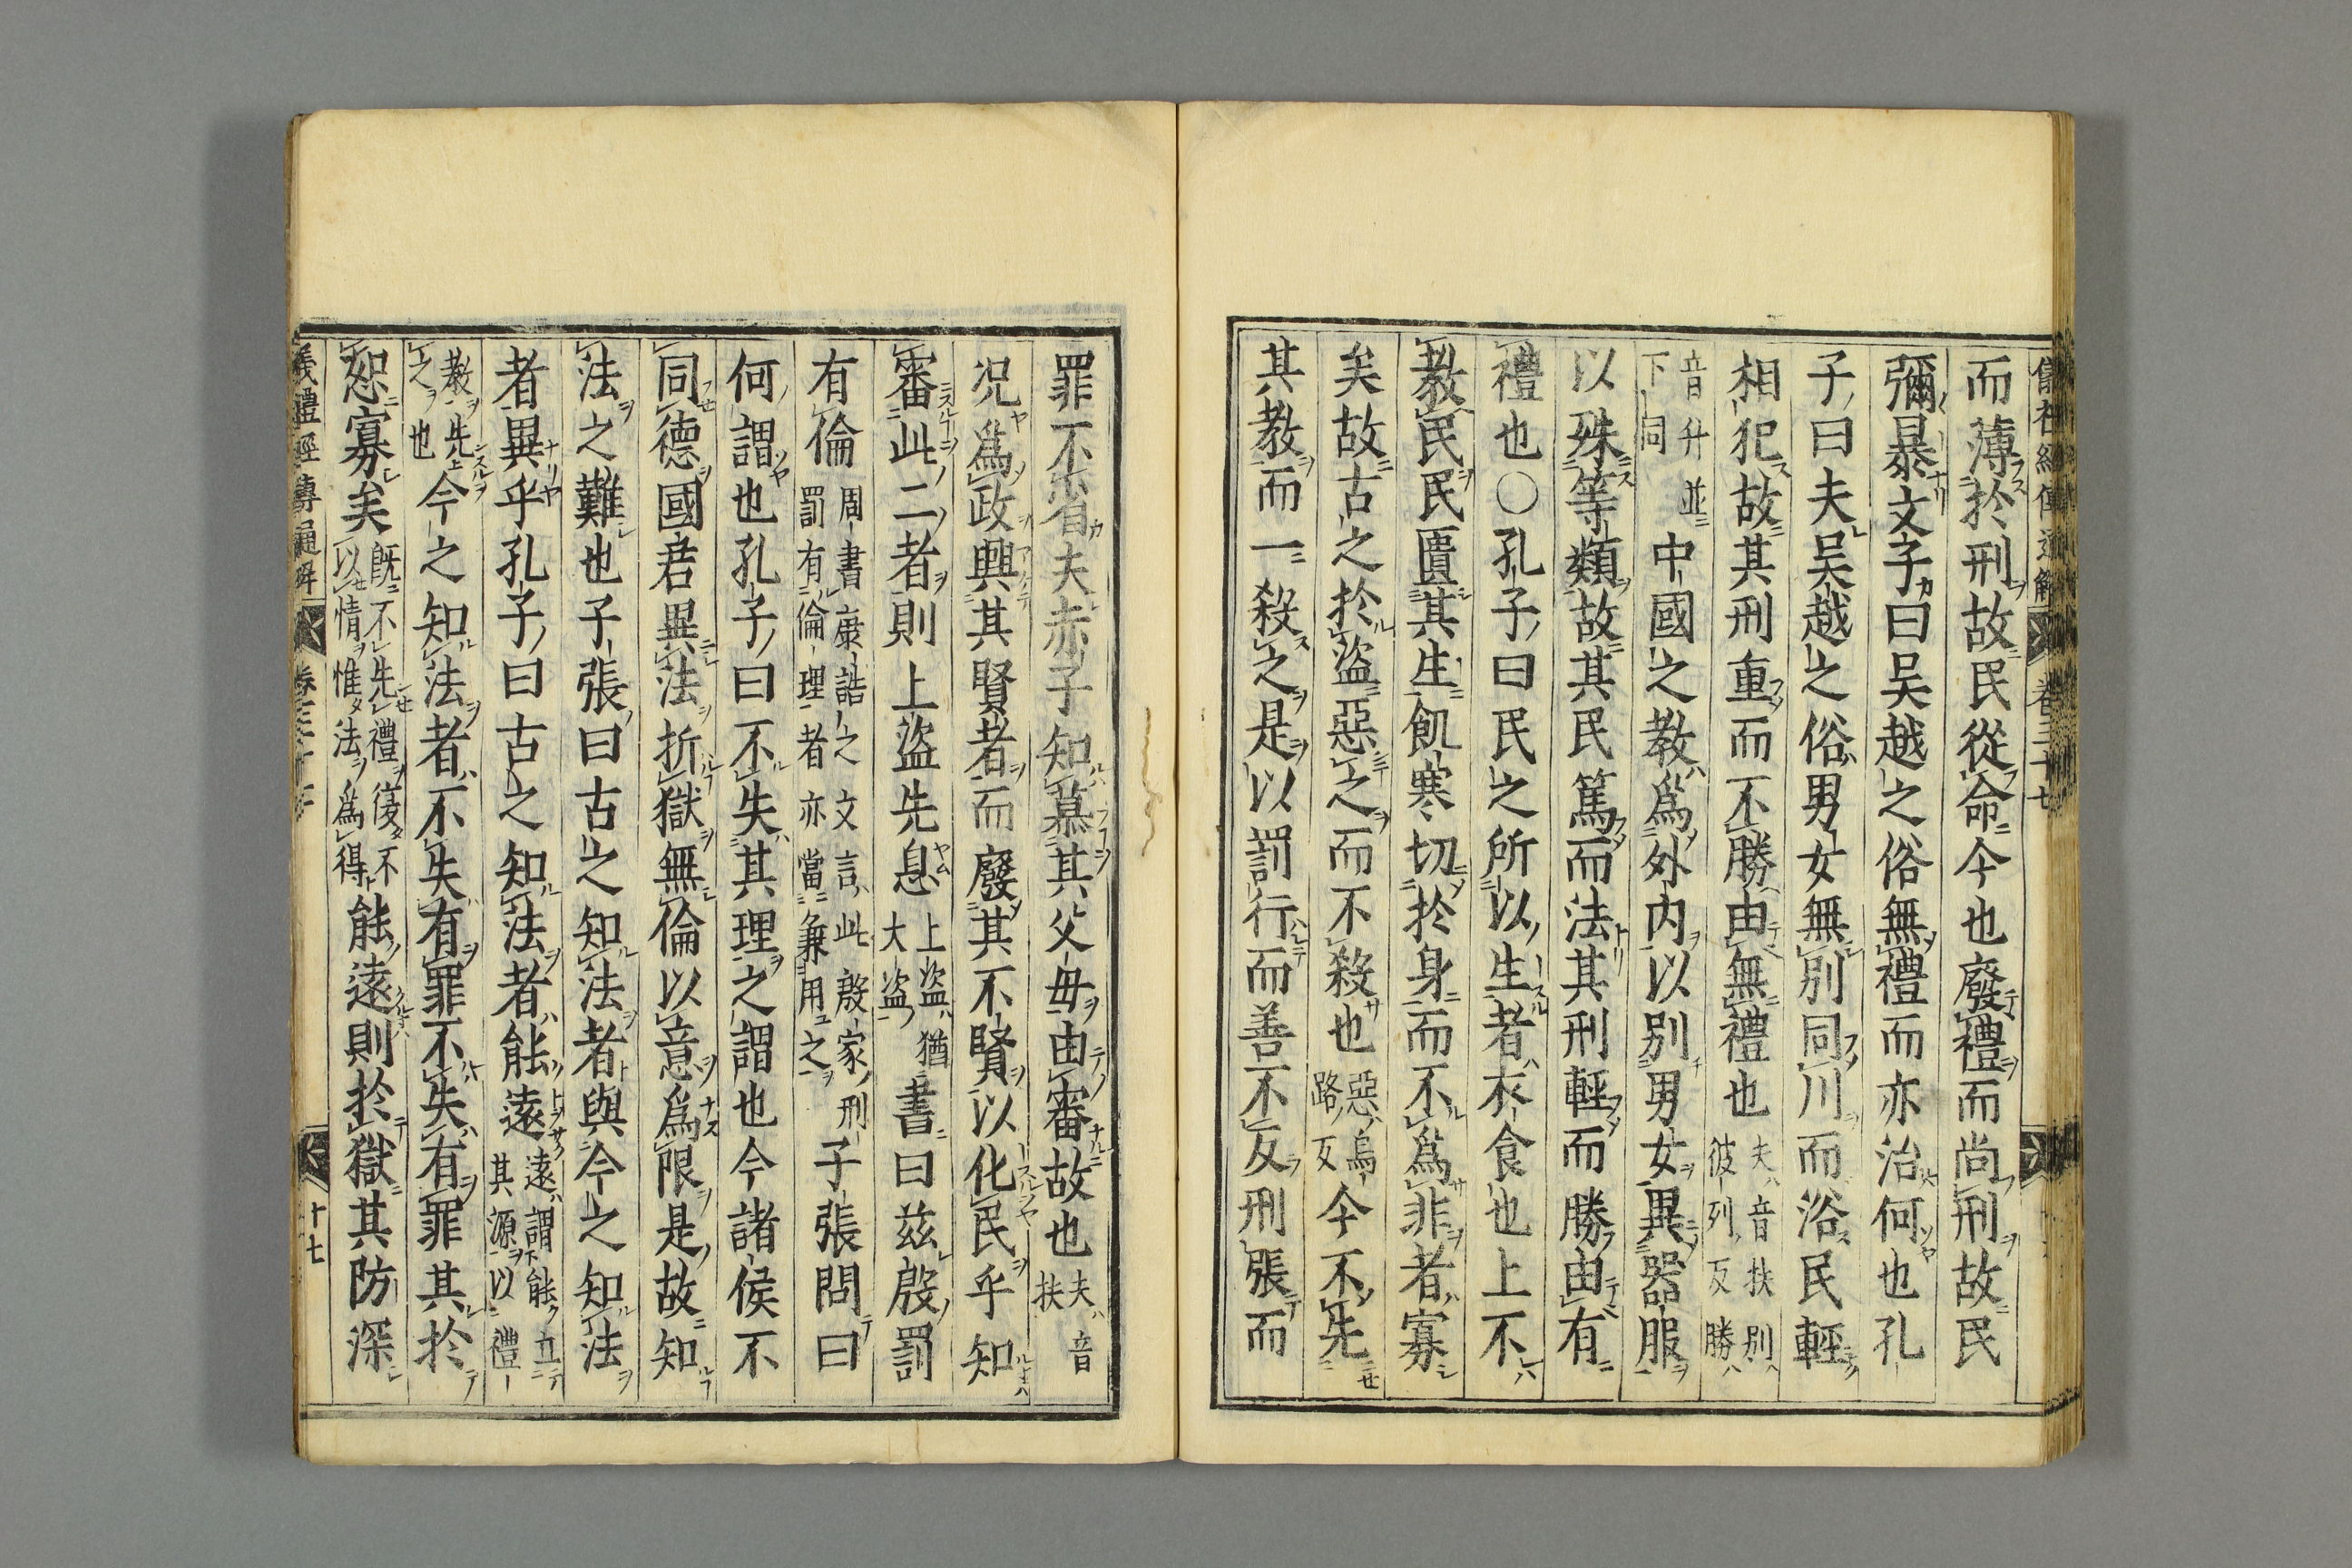 儀禮經傳通解　卷三十七
而薄於刑故民從命今也廢禮而尚刑故民
彌暴文子曰吳越之俗無禮而亦治何也孔
子曰夫吳越之俗男女無別同川而浴民輕
相犯故其刑重而不勝由無禮也夫音扶別彼列反勝
音升並下同中國之教爲外内以別男女異器服
以殊等類故其民篤而法其刑輕而勝由有
禮也○孔子曰民之所以生者衣食也上不
教民民匱其生飢寒切於身而不爲非者寡
矣故古之於盜惡之而不殺也惡烏路反今不先
其教而一殺之是以罰行而善不反刑張而
罪不省夫赤子知慕其父母由審故也夫音扶
況爲政興其賢者而廢其不賢以化民乎知
審此二者則上盜先息上盜猶大盜書曰兹殷罰
有倫周書康誥之文言此殷家刑罰有倫理者亦當兼用之子張問曰
何謂也孔子曰不失其理之謂也今諸侯不
同德國君異法折獄無倫以意爲限是故知
法之難也子張曰古之知法者與今之知法
者異乎孔子曰古之知法者能遠遠謂能立其源以禮
教先之也今之知法者不失有罪不失有罪其於
恕寡矣既不先禮復不以情惟法爲得能遠則於獄其防深
儀禮經傳通解　十七